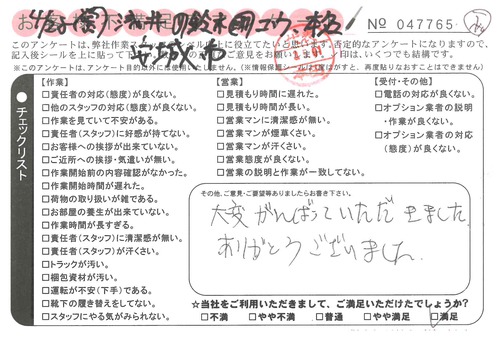 No 047765
このアンケートは、弊社作業ス
上に役立てたいと思います。否定的なアンケートになりますので、
記入後シールを上に貼って
ご意見をお願いします。
印は、いくつでも結構です。
※このアンケートは、アンケート目的以外に使用いたしません。
再度貼りなおすことはできません)
チェックリスト
【作業】
□責任者の対応(態度)が良くない。
□他のスタッフの対応(態度)が良くない。
□作業を見ていて不安がある。
□責任者(スタッフ)に好感が持てない。
□お客様への挨拶が出来ていない。
□ご近所への挨拶・気遣いが無い。
□作業開始前の内容確認がなかった。
□作業開始時間が遅れた。
□荷物の取り扱いが雑である。
□お部屋の養生が出来ていない。
□作業時間が長すぎる。
□責任者(スタッフ)に清潔感が無い。
□責任者(スタッフ)が汗くさい。
□トラックが汚い。
□梱包資材が汚い。
□運転が不安(下手)である。
□靴下の履き替えをしてない。
□スタッフにやる気がみられない。
【営業】
□見積もり時間に遅れた。
□見積もり時間が長い。
□営業マンに清潔感が無い。
□営業マンが煙草くさい。
□営業マンが汗くさい。
□営業態度が良くない。
□営業の説明と作業が一致してない。
【受付・その他】
□電話の対応が良くない。
□オプション業者の説明
・作業が良くない。
□オプション業者の対応
(態度)が良くない。
その他、ご意見・ご要望等ありましたらお書き下さい。
大変がんばっていただきました
ありがとうございました。
☆当社をご利用いただきまして、ご満足いただけたでしょうか?
□不満 □やや不満 □普通 □やや満足 □満足